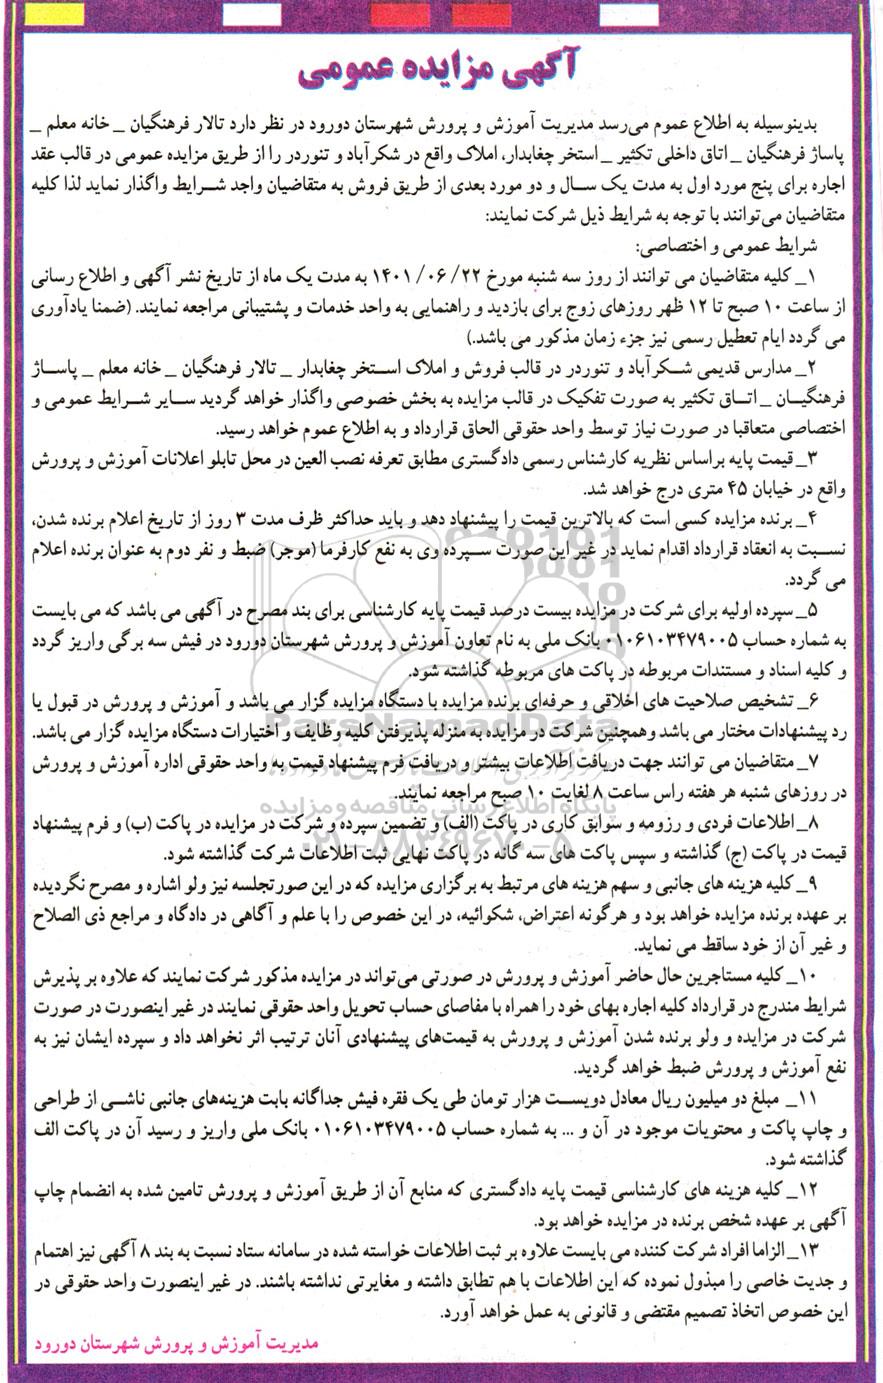 آگهی مزایده عمومی
بدینوسیله به اطلاع عموم می‌رسد مدیریت آموزش و پرورش شهرستان دورود در نظر دارد تالار فرهنگیان _ خانه معلم _
پاساژ فرهنگیان _ اتاق داخلی تکثیر _ استخر چغابدار، املاک واقع در شکرآباد و تنوردر را از طریق مزایده عمومی در قالب عقد
اجاره برای پنج مورد اول به مدت یک سال و دو مورد بعدی از طریق فروش به متقاضیان واجد شرایط واگذار نماید لذا کلیه
متقاضیان می‌توانند با توجه به شرایط ذیل شرکت نمایند:
شرایط عمومی و اختصاصی:
۱_ کلیه متقاضیان می توانند از روز سه شنبه مورخ ۲۲/ ۰۶/ ۱۴۰۱ به مدت یک ماه از تاریخ نشر آگهی و اطلاع رسانی
از ساعت ۱۰ صبح تا ۱۲ ظهر روزهای زوج برای بازدید و راهنمایی به واحد خدمات و پشتیبانی مراجعه نمایند. (ضمنا یادآوری
می گردد ایام تعطیل رسمی نیز جزء زمان مذکور می باشد.)
۲_ مدارس قدیمی شکرآباد و تنوردر در قالب فروش و املاک استخر چغابدار _ تالار فرهنگیان _ خانه معلم _ پاساژ
فرهنگیان _ اتاق تکثیر به صورت تفکیک در قالب مزایده به بخش خصوصی واگذار خواهد گردید سایر شرایط عمومی و
اختصاصی متعاقبا در صورت نیاز توسط واحد حقوقی الحاق قرارداد و به اطلاع عموم خواهد رسید.
۳_ قیمت پایه براساس نظریه کارشناس رسمی دادگستری مطابق تعرفه نصب العین در محل تابلو اعلانات آموزش و پرورش
واقع در خیابان ۴۵ متری درج خواهد شد.
۴_ برنده مزایده کسی است که بالاترین قیمت را پیشنهاد دهد و باید حداکثر ظرف مدت ۳ روز از تاریخ اعلام برنده شدن،
نسبت به انعقاد قرارداد اقدام نماید در غیر این صورت سپرده وی به نفع کارفرما (موجر) ضبط و نفر دوم به عنوان برنده اعلام
می گردد.
۵_ سپرده اولیه برای شرکت در مزایده بیست درصد قیمت پایه کارشناسی برای بند مصرح در آگهی می باشد که می بایست
به شماره حساب ۰۱۰۶۱۰۳۴۷۹۰۰۵ بانک ملی به نام تعاون آموزش و پرورش شهرستان دورود در فیش سه برگی واریز گردد
و کلیه اسناد و مستندات مربوطه در پاکت های مربوطه گذاشته شود.
۶_ تشخیص صلاحیت های اخلاقی و حرفه‌ای برنده مزایده با دستگاه مزایده گزار می باشد و آموزش و پرورش در قبول یا
رد پیشنهادات مختار می باشد وهمچنین شرکت در مزایده به منزله پذیرفتن کلیه وظایف و اختیارات دستگاه مزایده گزار می باشد.
ParsNamadData
۷_ متقاضیان می توانند جهت دریافت اطلاعات بیشتر و دریافت فرم پیشنهاد قیمت به واحد حقوقی اداره آموزش و پرورش
در روزهای شنبه هر هفته راس ساعت ۸ لغایت ۱۰ صبح مراجعه نمایند.
پایگاه اطلاع رسانی مناقصه و مزایده
۸_ اطلاعات فردی و رزومه و سوابق کاری در پاکت (الف) و تضمین سپرده و شرکت در مزایده در پاکت (ب) و فرم پیشنهاد
قیمت در پاکت (ج) گذاشته و سپس پاکت های سه گانه در پاکت نهایی ثبت اطلاعات شرکت گذاشته شود.
۰۲۱-۸۸۳۴۹۶۷۰-۵
۹_ کلیه هزینه های جانبی و سهم هزینه های مرتبط به برگزاری مزایده که در این صورتجلسه نیز ولو اشاره و مصرح نگردیده
بر عهده برنده مزایده خواهد بود و هرگونه اعتراض، شکوائیه، در این خصوص را با علم و آگاهی در دادگاه و مراجع ذی الصلاح
و غیر آن از خود ساقط می نماید.
۱۰_ کلیه مستاجرین حال حاضر آموزش و پرورش در صورتی می‌تواند در مزایده مذکور شرکت نمایند که علاوه بر پذیرش
شرایط مندرج در قرارداد کلیه اجاره بهای خود را همراه با مفاصای حساب تحویل واحد حقوقی نمایند در غیر اینصورت در صورت
شرکت در مزایده و ولو برنده شدن آموزش و پرورش به قیمت‌های پیشنهادی آنان ترتیب اثر نخواهد داد و سپرده ایشان نیز به
نفع آموزش و پرورش ضبط خواهد گردید.
۱۱_ مبلغ دو میلیون ریال معادل دویست هزار تومان طی یک فقره فیش جداگانه بابت هزینه‌های جانبی ناشی از طراحی
و چاپ پاکت و محتویات موجود در آن و ... به شماره حساب ۰۱۰۶۱۰۳۴۷۹۰۰۵ بانک ملی واریز و رسید آن در پاکت الف
گذاشته شود.
۱۲_ کلیه هزینه های کارشناسی قیمت پایه دادگستری که منابع آن از طریق آموزش و پرورش تامین شده به انضمام چاپ
آگهی بر عهده شخص برنده در مزایده خواهد بود.
۱۳_ الزاما افراد شرکت کننده می بایست علاوه بر ثبت اطلاعات خواسته شده در سامانه ستاد نسبت به بند ۸ آگهی نیز اهتمام
و جدیت خاصی را مبذول نموده که این اطلاعات با هم تطابق داشته و مغایرتی نداشته باشند. در غیر اینصورت واحد حقوقی در
این خصوص اتخاذ تصمیم مقتضی و قانونی به عمل خواهد آورد.
مدیریت آموزش و پرورش شهرستان دورود